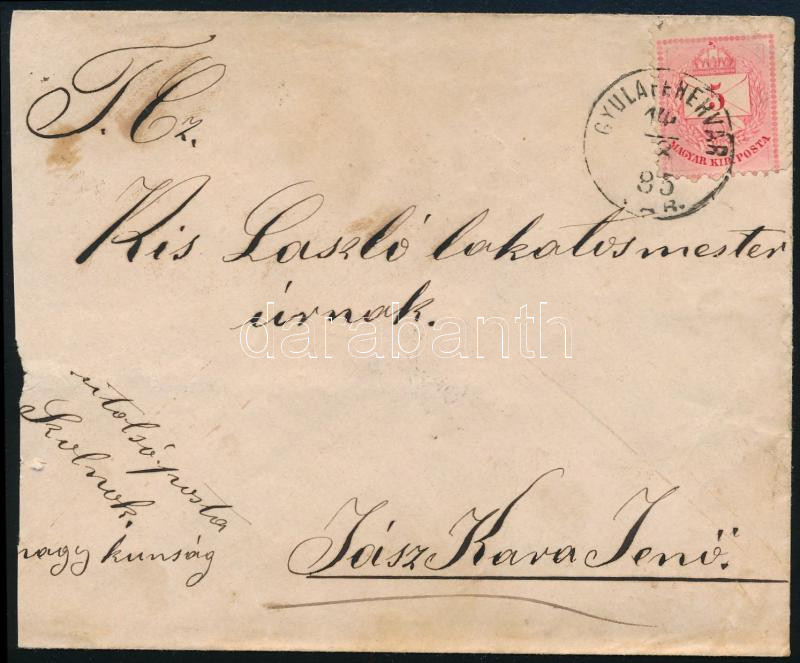 T. Cz.
Kis Laszló lakatosmester
úrnak.
utolsó posta
Szolnok.
nagy kunság
Jász Kara Jenő.
GYULAFEHÉRVÁR
85
5
MAGYAR KIR. POSTA
darabanth